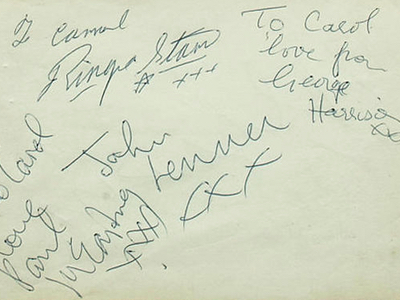 To Carol
Ringo Starr
xxx
To Carol
love from
George
Harrison
xx
John Lennon
xxx
To Carol
love
Paul
McCartney
xxx